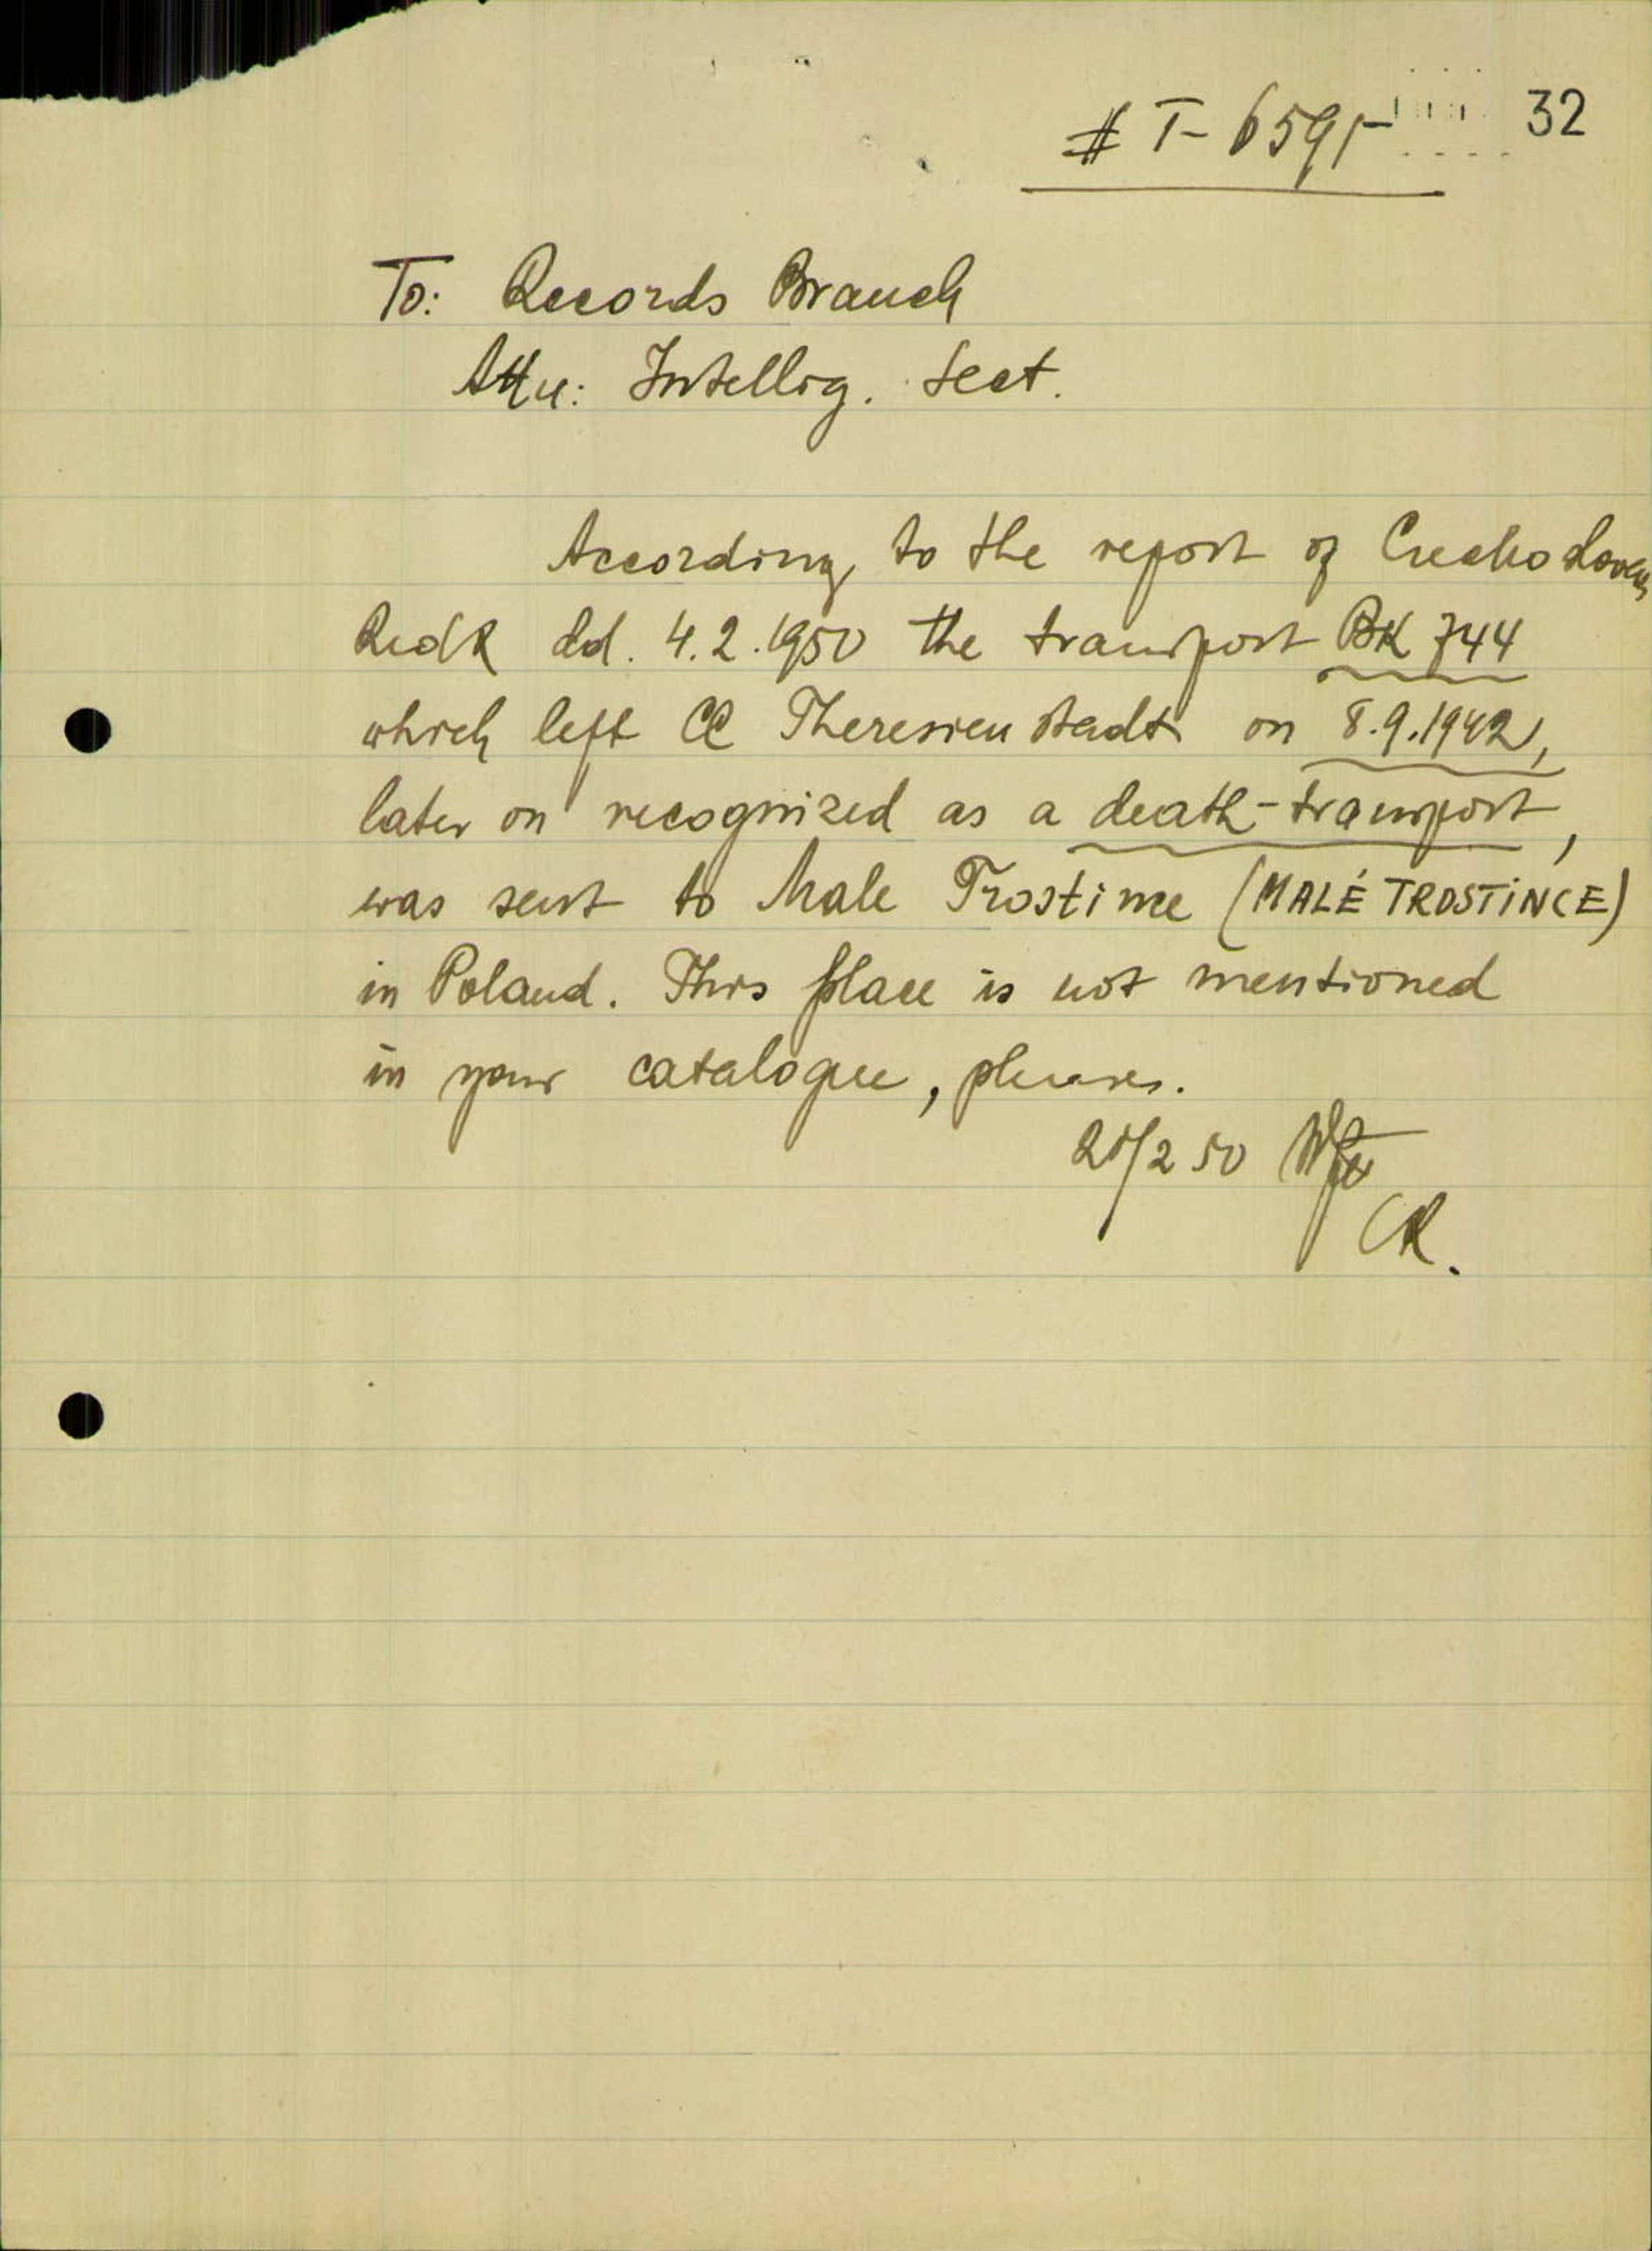 # T- 6595 32
To: Records Branch
Attn: Intellig. Sect.
According to the report of Czechoslovak
RedX dd. 4.2.1950 the transport BK 744
which left CC Theresienstadt on 8.9.1942,
later on recognized as a death-transport,
was sent to Male Trostince (MALÉ TROSTINCE)
in Poland. This place is not mentioned
in your catalogue, please.